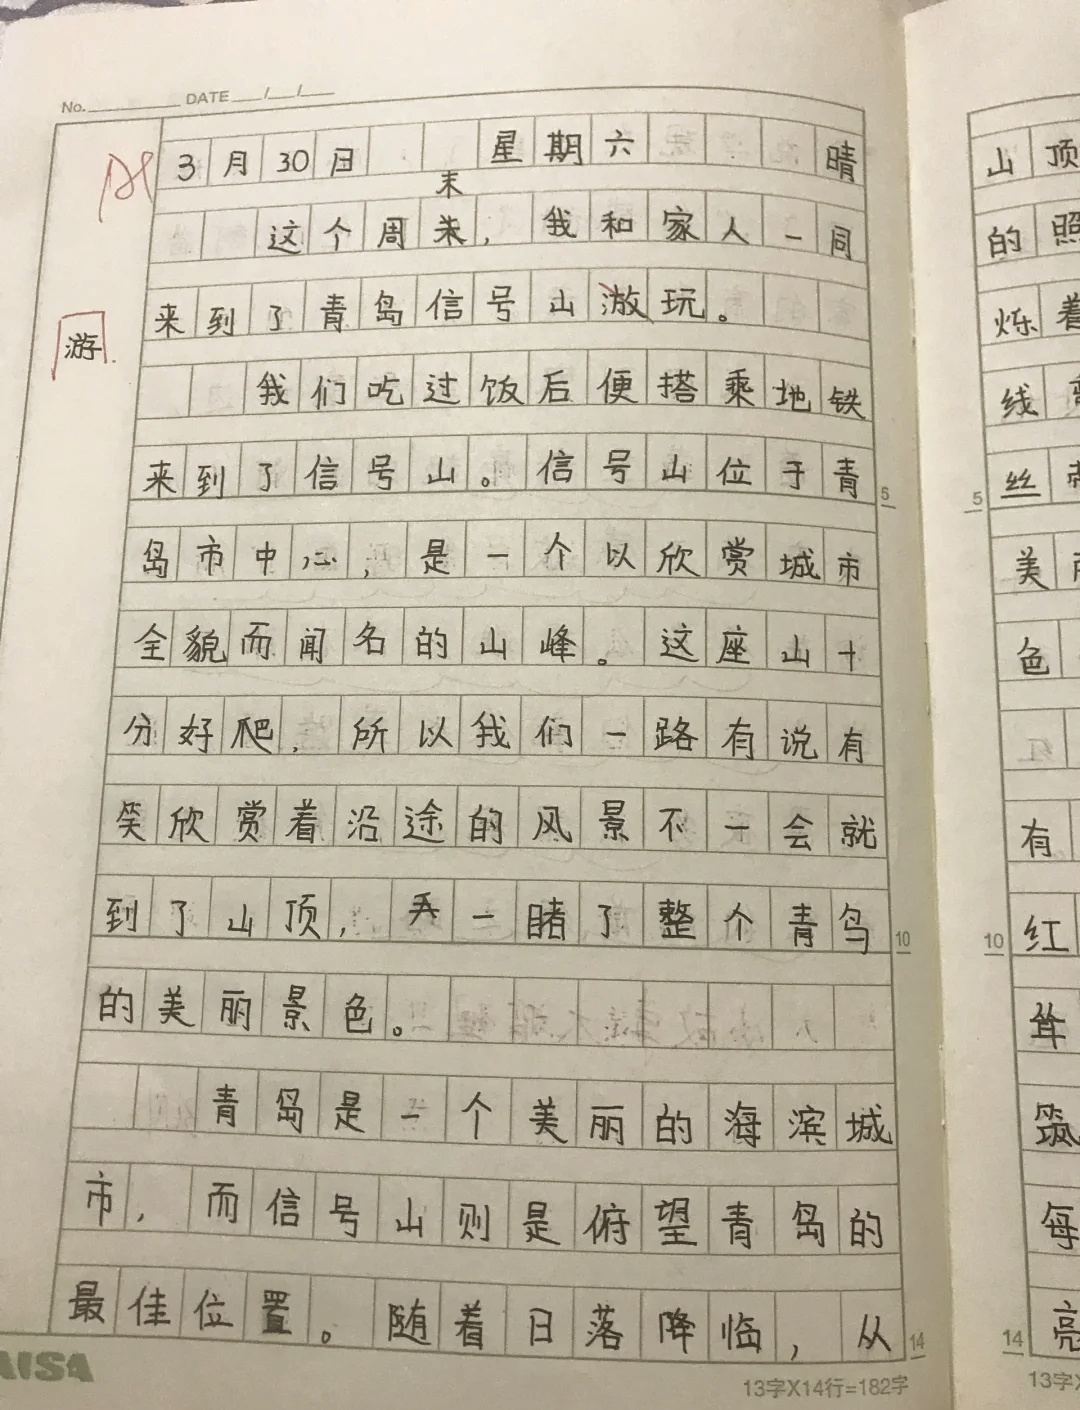 No. DATE / /
3月30日 星期六 晴
末
这个周未，我和家人一同
来到了青岛信号山游玩。
游
我们吃过饭后便搭乘地铁
来到了信号山。信号山位于青
岛市中心，是一个以欣赏城市
全貌而闻名的山峰。这座山十
分好爬，所以我们一路有说有
笑欣赏着沿途的风景不一会就
到了山顶，一睹了整个青鸟
的美丽景色。
青岛是一个美丽的海滨城
市，而信号山则是俯望青岛的
最佳位置。随着日落降临，从
5
10
14
AISA
13字X14行=182字
山顶
的照
烁着
线
丝
美
色
有
红
耸
筑
每
亮
5
10
14
13字